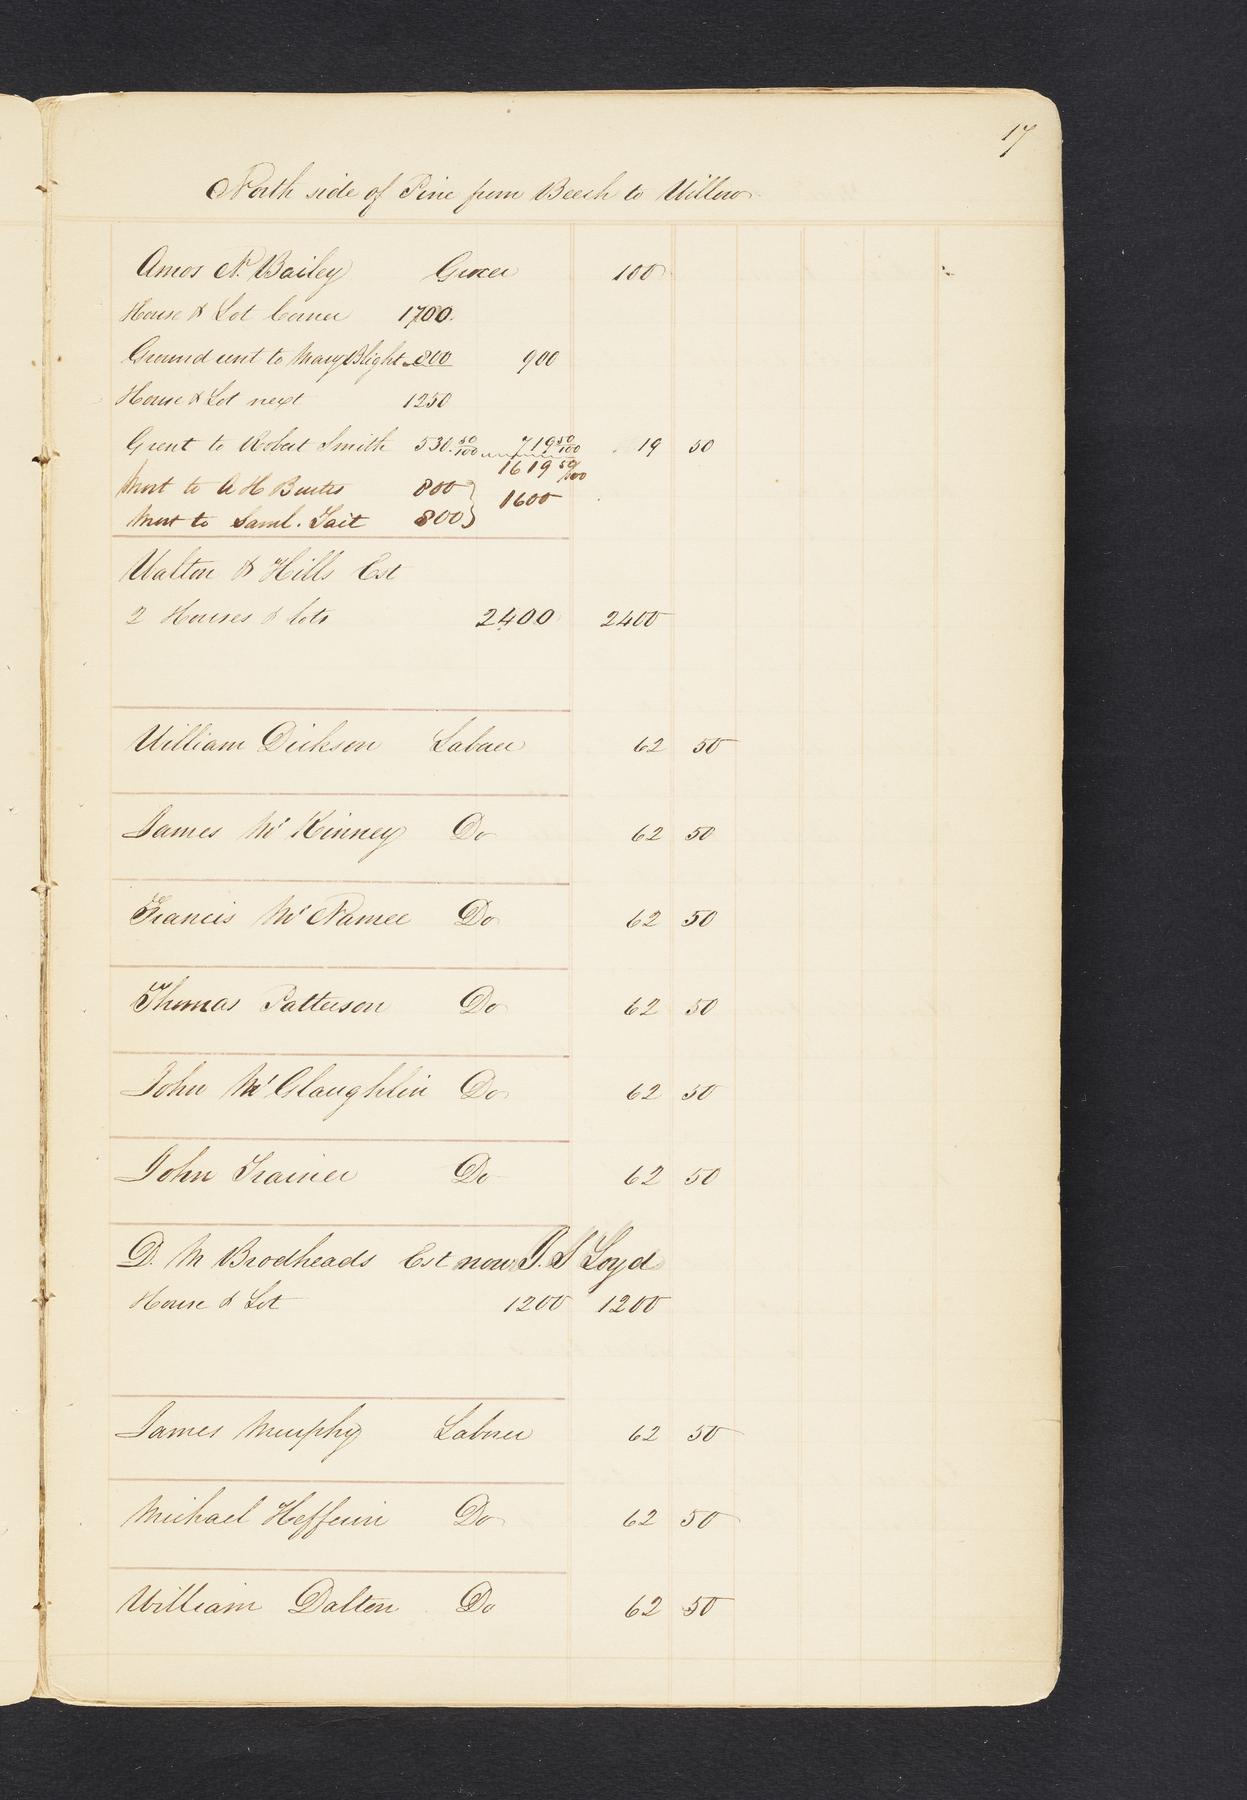 17
North side of Pine from Beech to Willow
Amos N. Bailey Grocer 100
House & Lot Corner 1700.
Ground rent to Mary Blight 800 900
House & Lot next 1250
G rent to Robert Smith 530.50/100 719 50/100 19 50
1619 50/100
Mort to A H 800
1600
Mort to Saml. Tait 800
Walton & Hills Est
2 Houses & lots 2400 2400
William Dickson Laborer 62 50
James Mc Kinney Do 62 50
Francis Mc Namee Do 62 50
Thomas Patterson Do 62 50
John Mc Glaughlin Do 62 50
John Trainer Do 62 50
D. M Brodheads Est now J. S Loyd
House & Lot 1200 1200
James Murphy Laborer 62 50
Michael Heffern Do 62 50
William Dalton Do 62 50